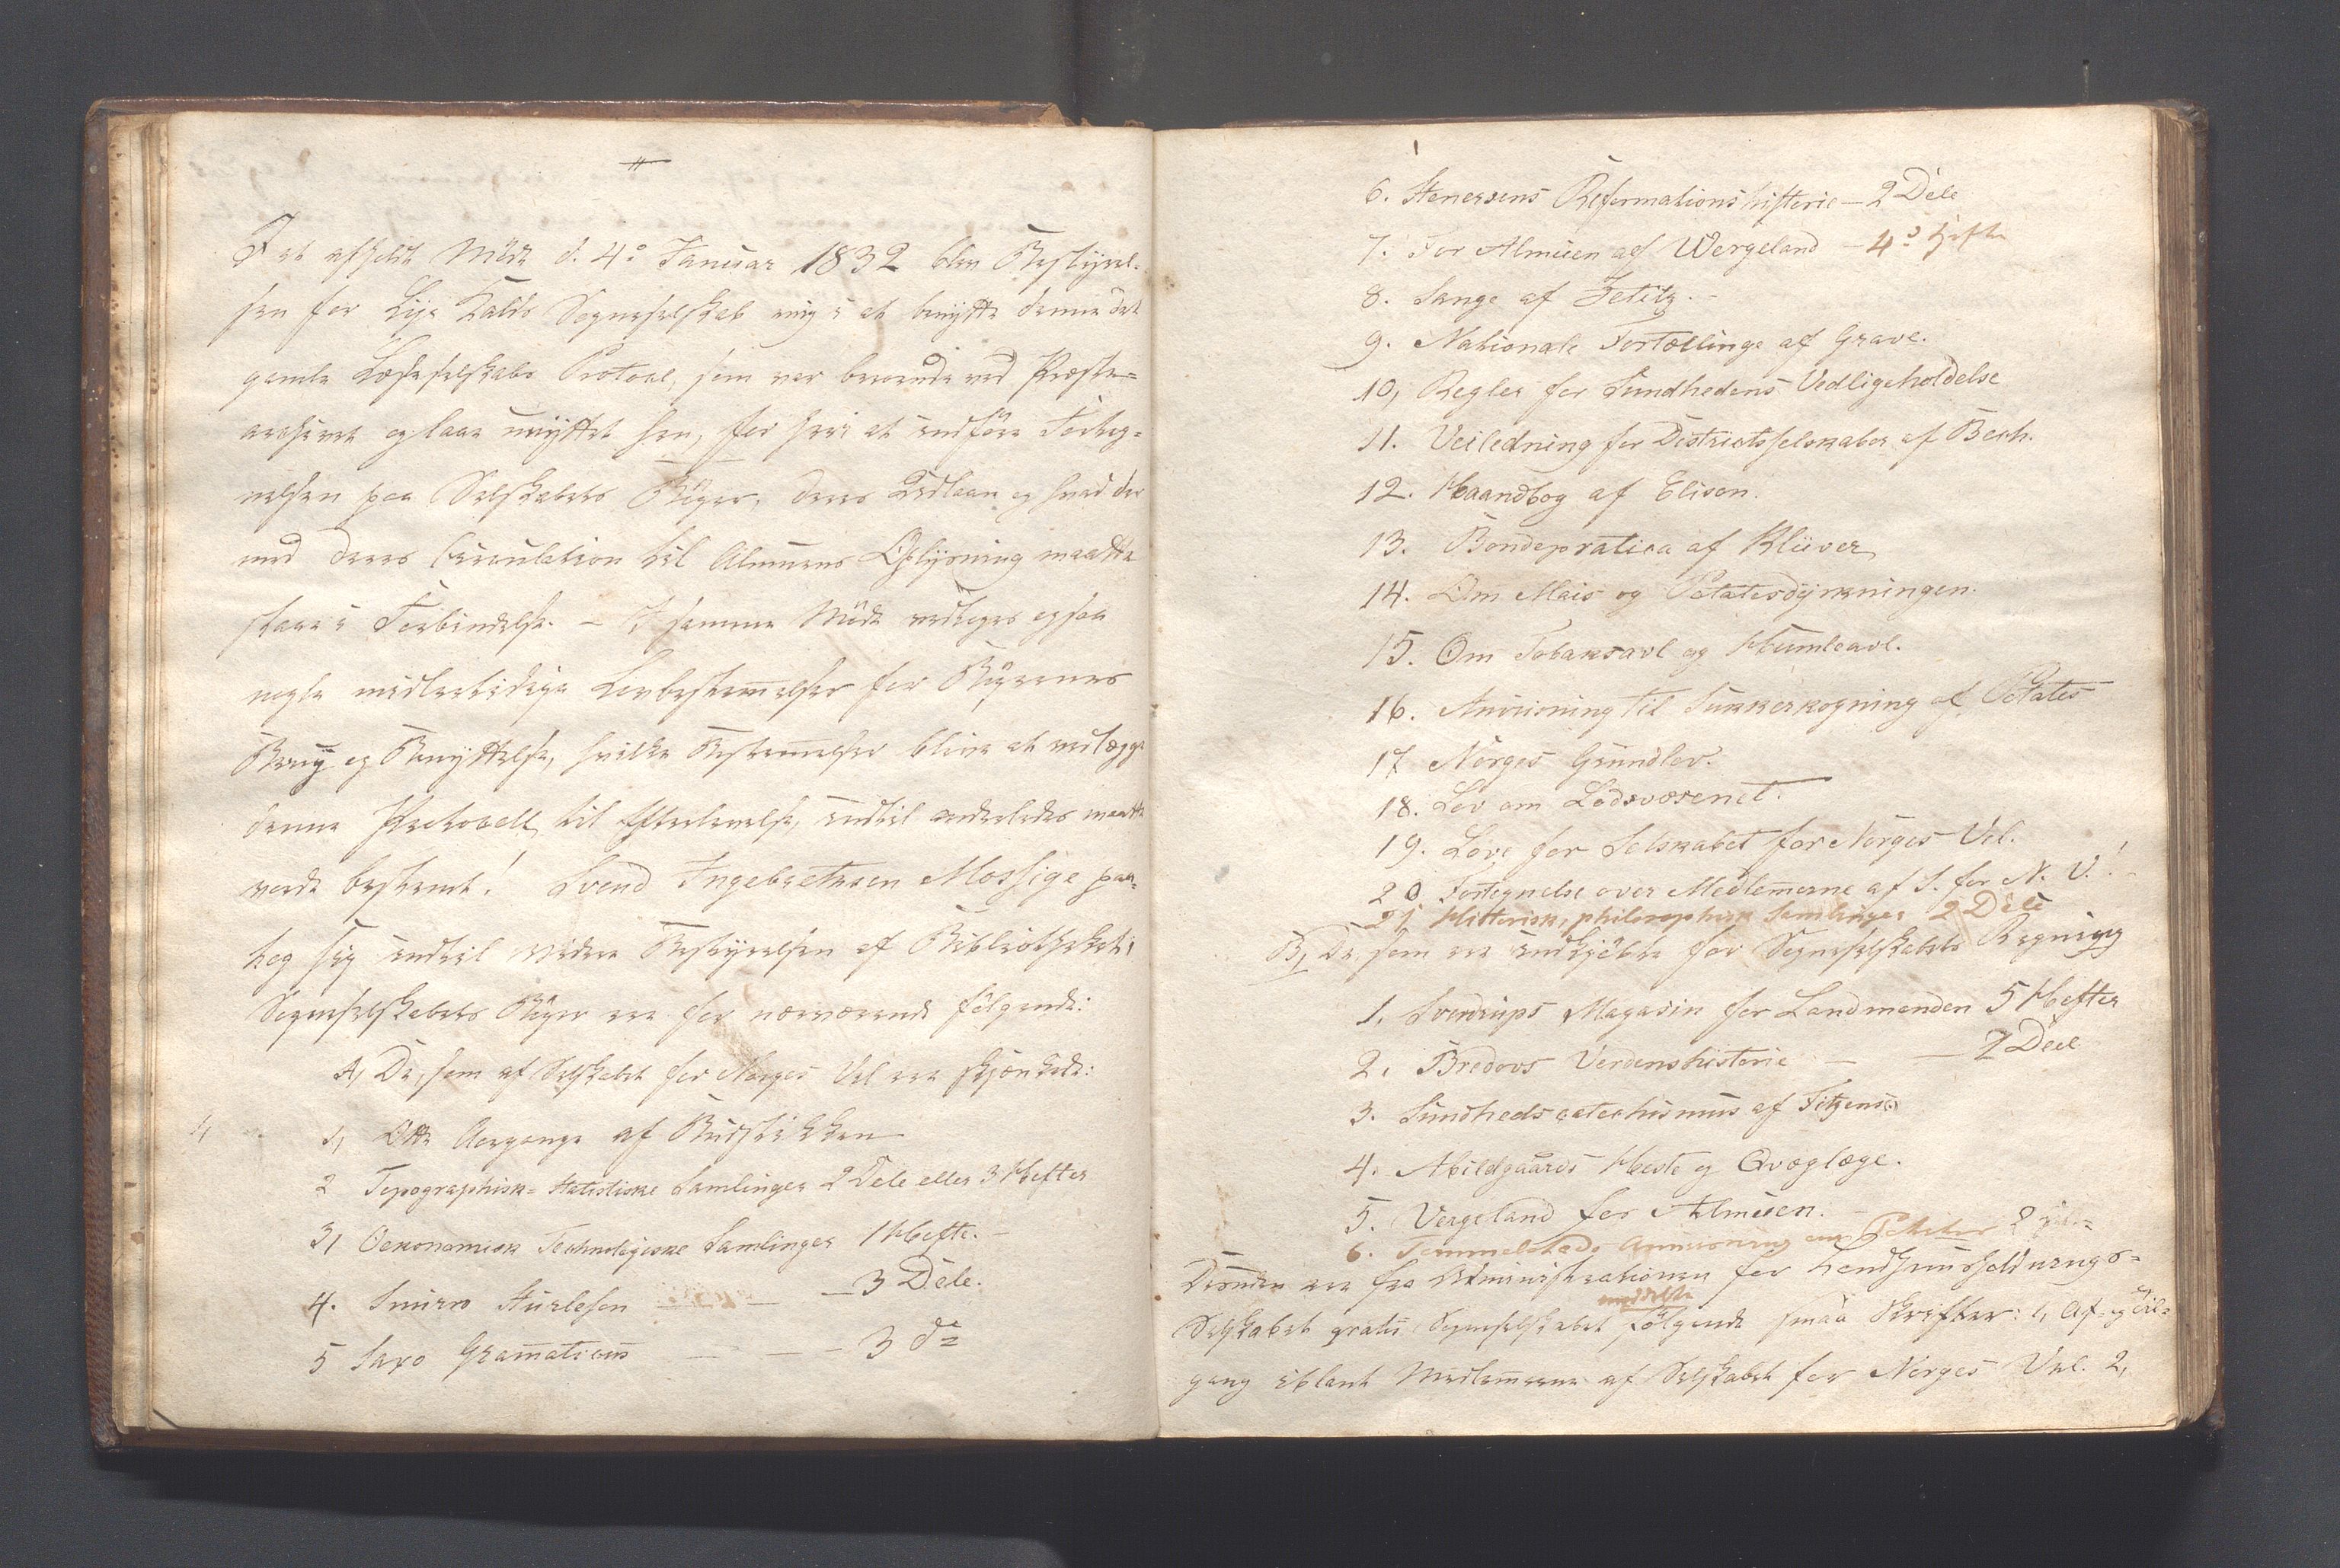 I et afholdt Møde d. 4de Januar 1832 blev Bestyrel-
sen for Lye Kalds Sogneselskab enig i at benytte denne det
gamle Læseselskabs Protocol, som var beroende ved Præste-
archivet og laae unyttet hen, for heri at indføre Forteg-
nelsen paa Selskabets Bøger, deres Udlaan og hvad der
med deres Circulation til Almuens Oplysning maatte
staae i Forbindelse. – I samme Møde vedtoges ogsaa
nogle midlertidige Lovbestemmelser for Bøgernes
Brug og Benyttelse, hvilke Bestemmelser blive at vedlægge
denne Protocoll til Efterlevelse, indtil anderledes maatte
vorde bestemt! Svend Ingebretsen Mossige paa-
tog sig indtil videre Bestyrelsen af Bibliotheket.
Sogneselskabets Bøger ere for nærværende følgende:
A, De, som af Selskabet for Norges Vel ere skjænkede:
1, Otte Aargange af Budstikken
2 Topographisk-Statistiske Samlinger 2 Dele eller 3 Hefter
3, Oekonomisk Technologiske Samlinger 1 Hefte. –
4. Snorro Sturlesen – – 3 Dele.
5 Saxo Gramaticus – – – 3 do
6. Stenersens Reformationshistorie – 2 Dele
7. For Almuen af Wergeland – 4 Hefte
8. Sange af Zetlitz. –
9. Nationale Fortællinge af Grave.
10, Regler for Sundhedens Vedligeholdelse
11. Veiledning for Districtsselskaber af Bech.
12. Haandbog af Elison.
13. Bondepratica af Klüver
14. Om Mais og Potatesdyrkningen.
15. Om Tobaksavl og Humleavl.
16. Anviisning til Sukkerkogning af Potates
17 Norges Grundlov.
18. Lov om Lodsvæsenet.
19. Love for Selskabet for Norges Vel.
20. Fortegnelse over Medlemerne af S. for N. V.! –
21 Historisk, philosophisk Samlinger 2 Dele
B, De, som ere indkjøbte for Sogneselskabets Regning
1. Sverdrups Magasin for Landmanden 5 Hefter
2. Bredovs Verdenshistorie – – 2 Deel
3. Sundhedscatechismus af
4. Abildgaards Heste og Qvæglæge.
5. Vergeland for Almuen. –
6. Anviisning om Potetes 2
Desuden ere fra Administrationen for Landhuusholdnings-
Selskabet gratis Sogneselskabet meddelte følgende smaa Skrifter: 1, Af- og Til-
gang iblant Medlemerne af Selskabet for Norges Vel. 2,